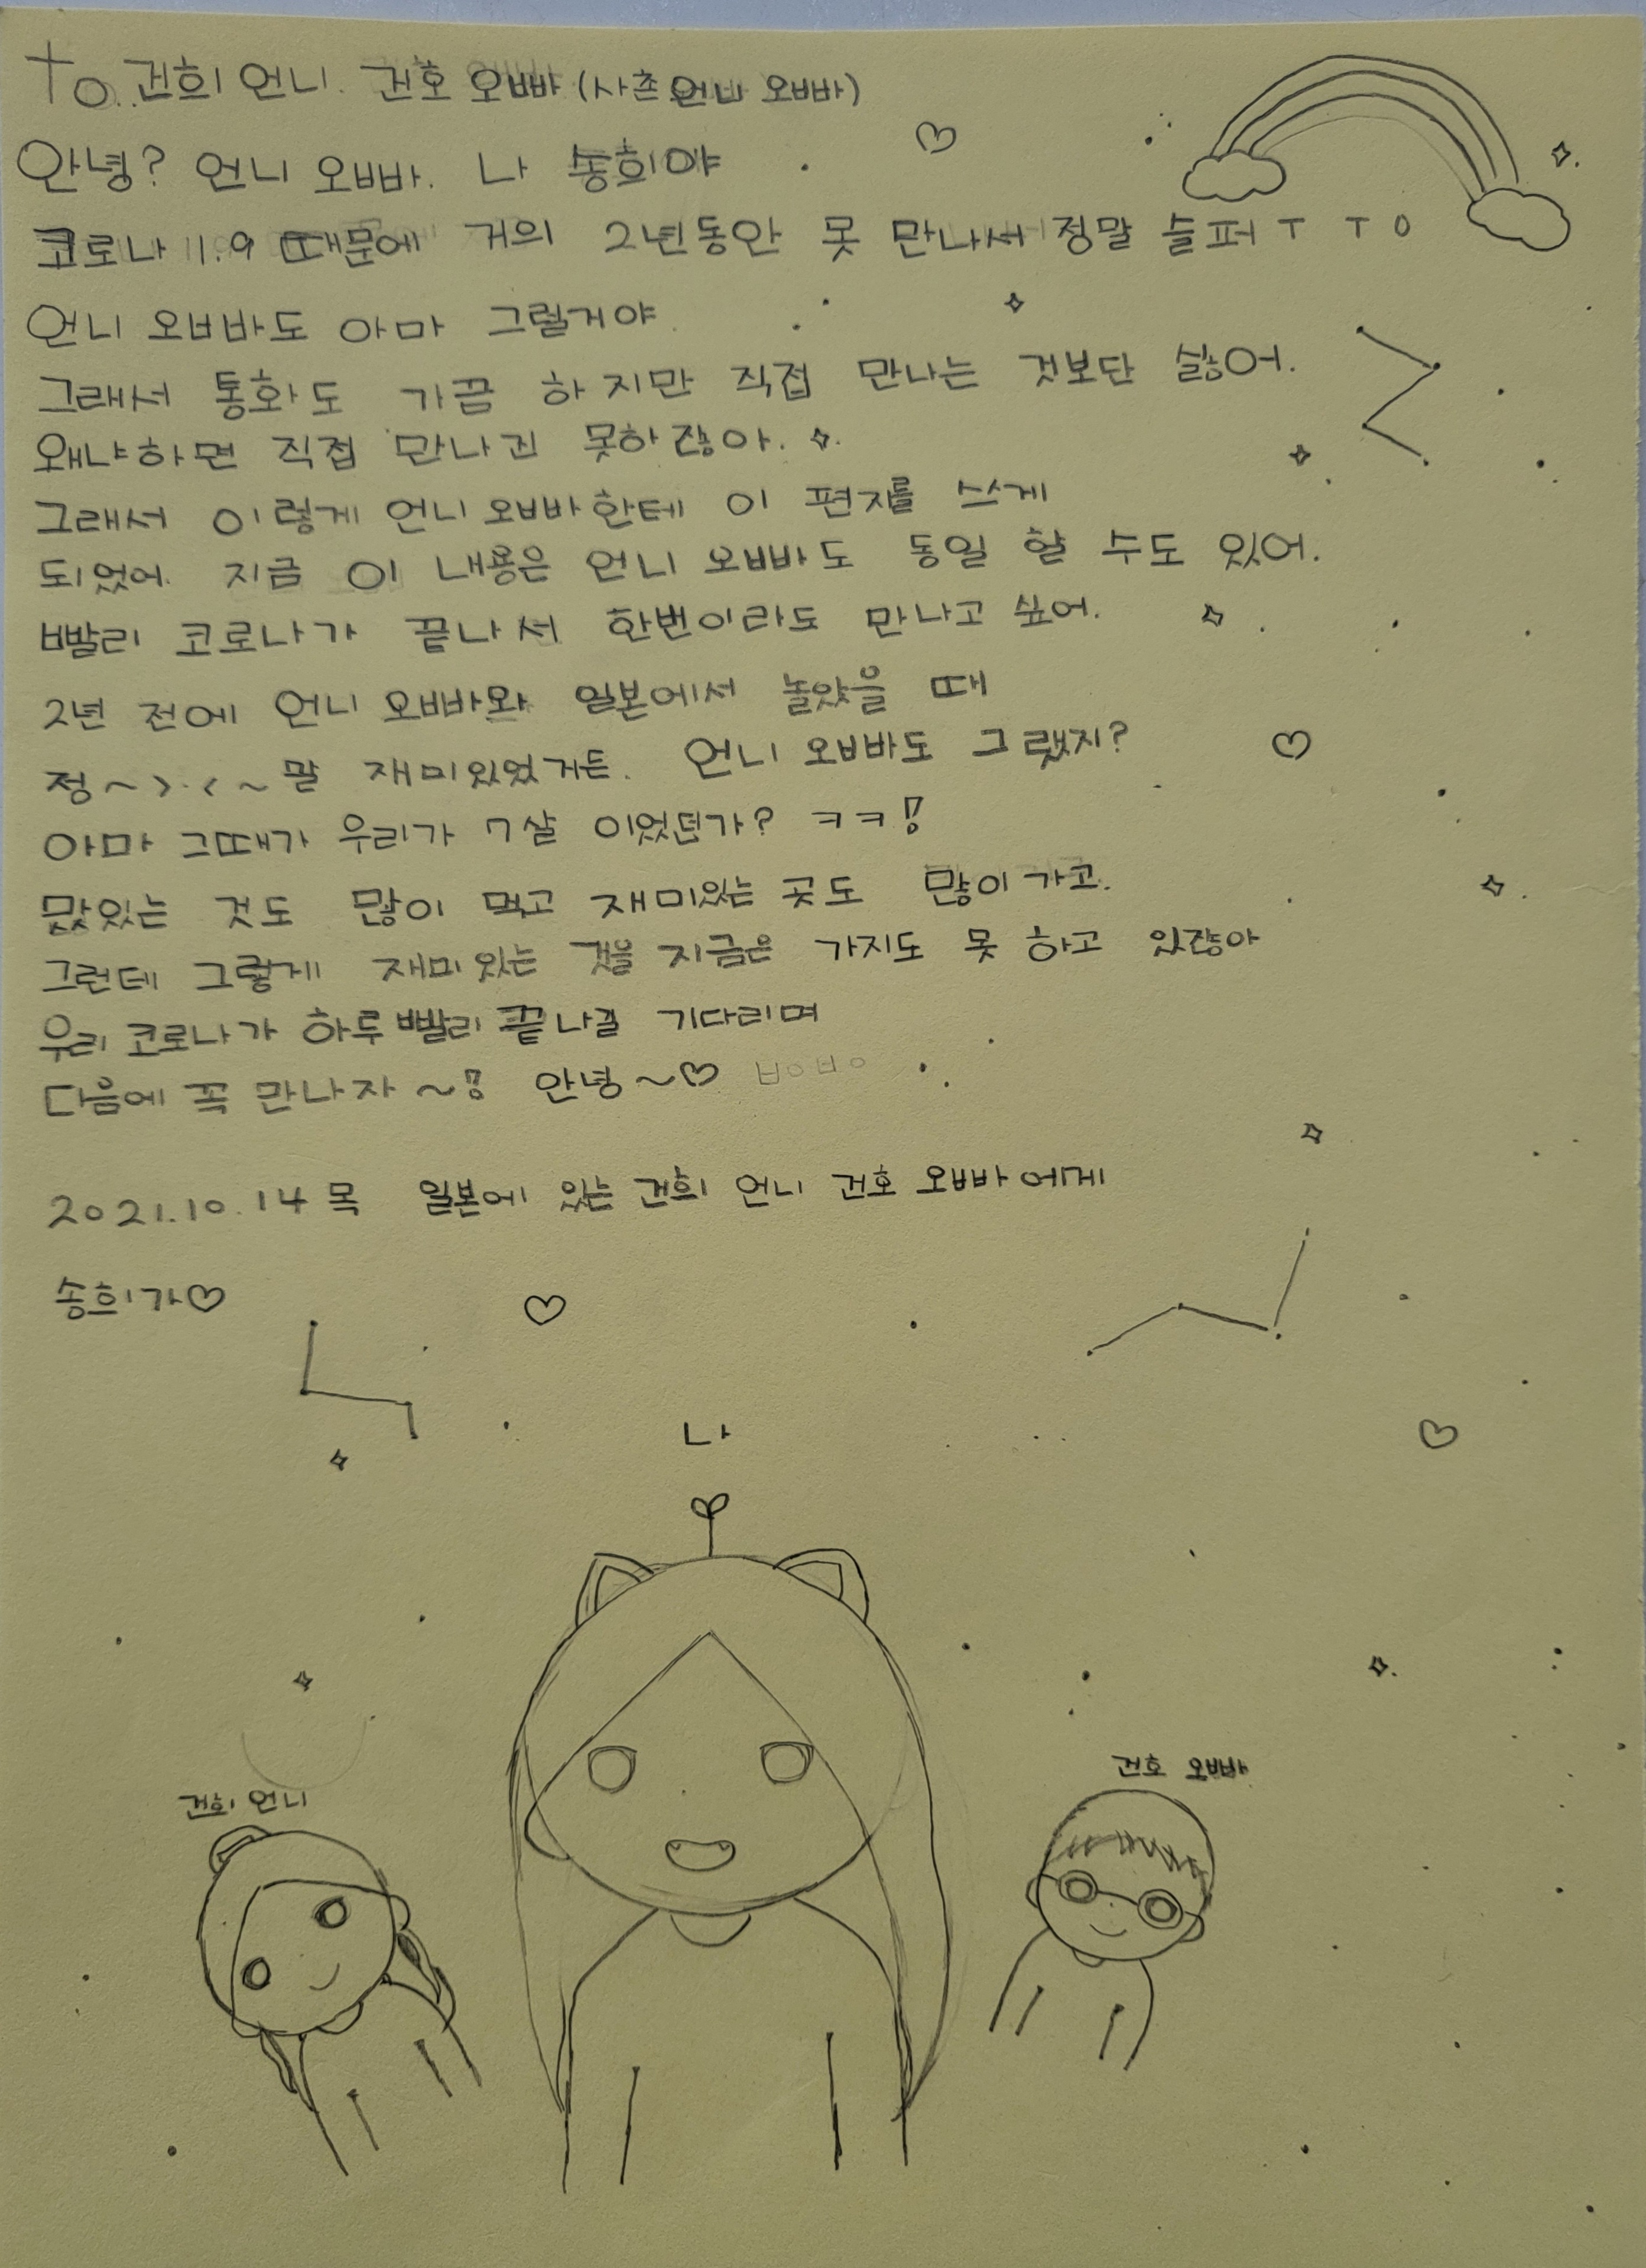 To. 건희 언니. 건호 오빠 (사촌 언니 오빠)
안녕? 언니 오빠. 나 송희야
코로나 1.9 때문에 거의 2년동안 못 만나서 정말 슬퍼 T T 0
언니 오빠도 아마 그럴거야
그래서 통화도 가끔 하지만 직접 만나는 것보단 싫어.
왜냐하면 직접 만나진 못하잖아.
그래서 이렇게 언니 오빠한테 이 편지를 쓰게
되었어. 지금 이 내용은 언니 오빠도 동일 할 수도 있어.
빨리 코로나가 끝나서 한번이라도 만나고 싶어.
2년 전에 언니 오빠와 일본에서 놀았을 때
정~>.<~말 재미있었거든. 언니 오빠도 그랬지?
아마 그때가 우리가 7살 이었던가? ㅋㅋ!
맜있는 것도 많이 먹고 재미있는 곳도 많이 가고.
그런데 그렇게 재미있는 것을 지금은 가지도 못 하고 있잖아
우리 코로나가 하루 빨리 끝나길 기다리며
다음에 꼭 만나자 ~! 안녕~♡ ㅂㅇㅂㅇ
2021.10.14 목 일본에 있는 건희 언니 건호 오빠에게
송희가♡
나
건희 언니
건호 오빠